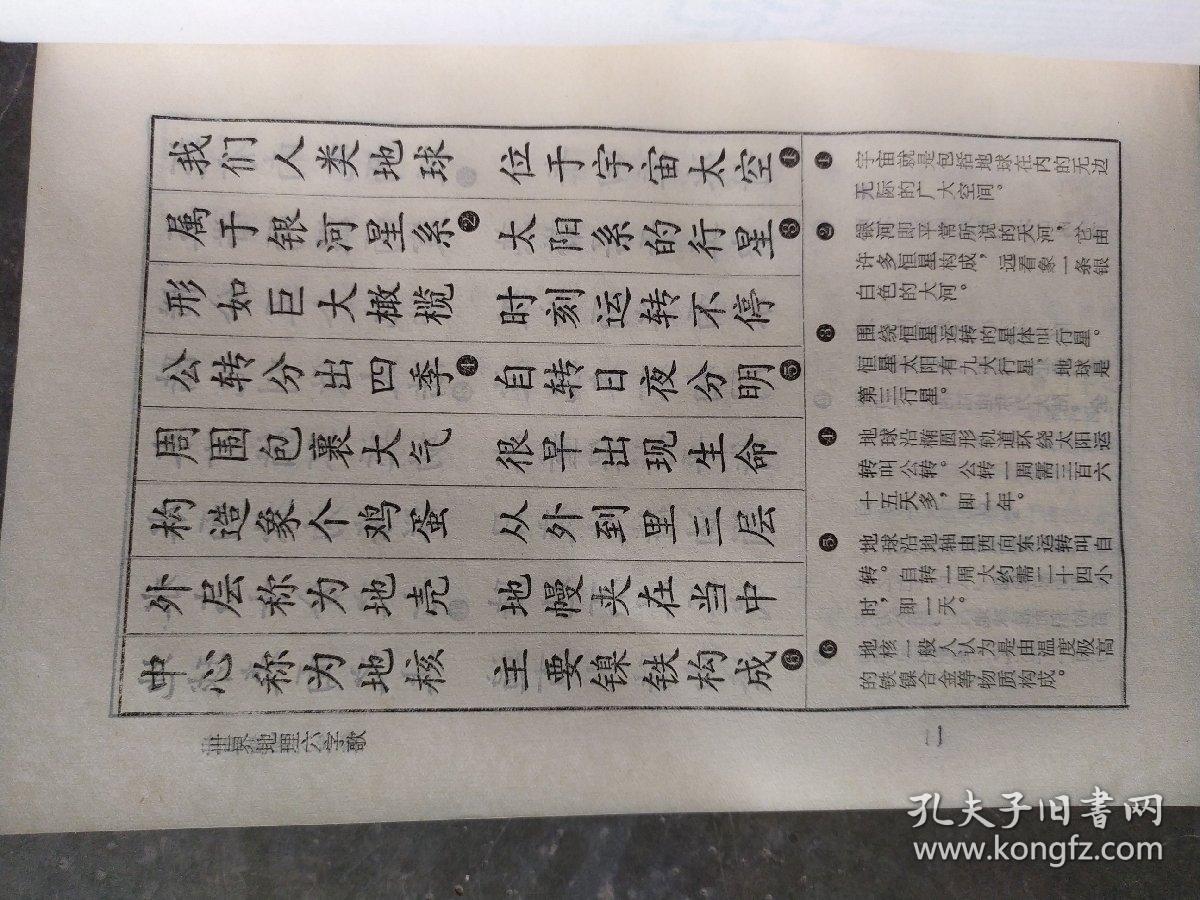 我们人类地球 位于宇宙太空❶
属于银河星系❷ 太阳系的行星❸
形如巨大橄榄 时刻运转不停
公转分出四季❹ 自转日夜分明❺
周围包裹大气 很早出现生命
构造象个鸡蛋 从外到里三层
外层称为地壳 地幔夹在当中
中心称为地核 主要镍铁构成❻
❶ 宇宙就是包括地球在内的无边
无际的广大空间。
❷ 银河即平常所说的天河，它由
许多恒星构成，远看象一条银
白色的大河。
❸ 围绕恒星运转的星体叫行星。
恒星太阳有九大行星，地球是
第三行星。
❹ 地球沿椭圆形轨道环绕太阳运
转叫公转。公转一周需三百六
十五天多，即一年。
❺ 地球沿地轴由西向东运转叫自
转。自转一周大约需二十四小
时，即一天。
❻ 地核一般人认为是由温度极高
的铁镍合金等物质构成。
世界地理六字歌
二
孔夫子旧书网
www.kongfz.com